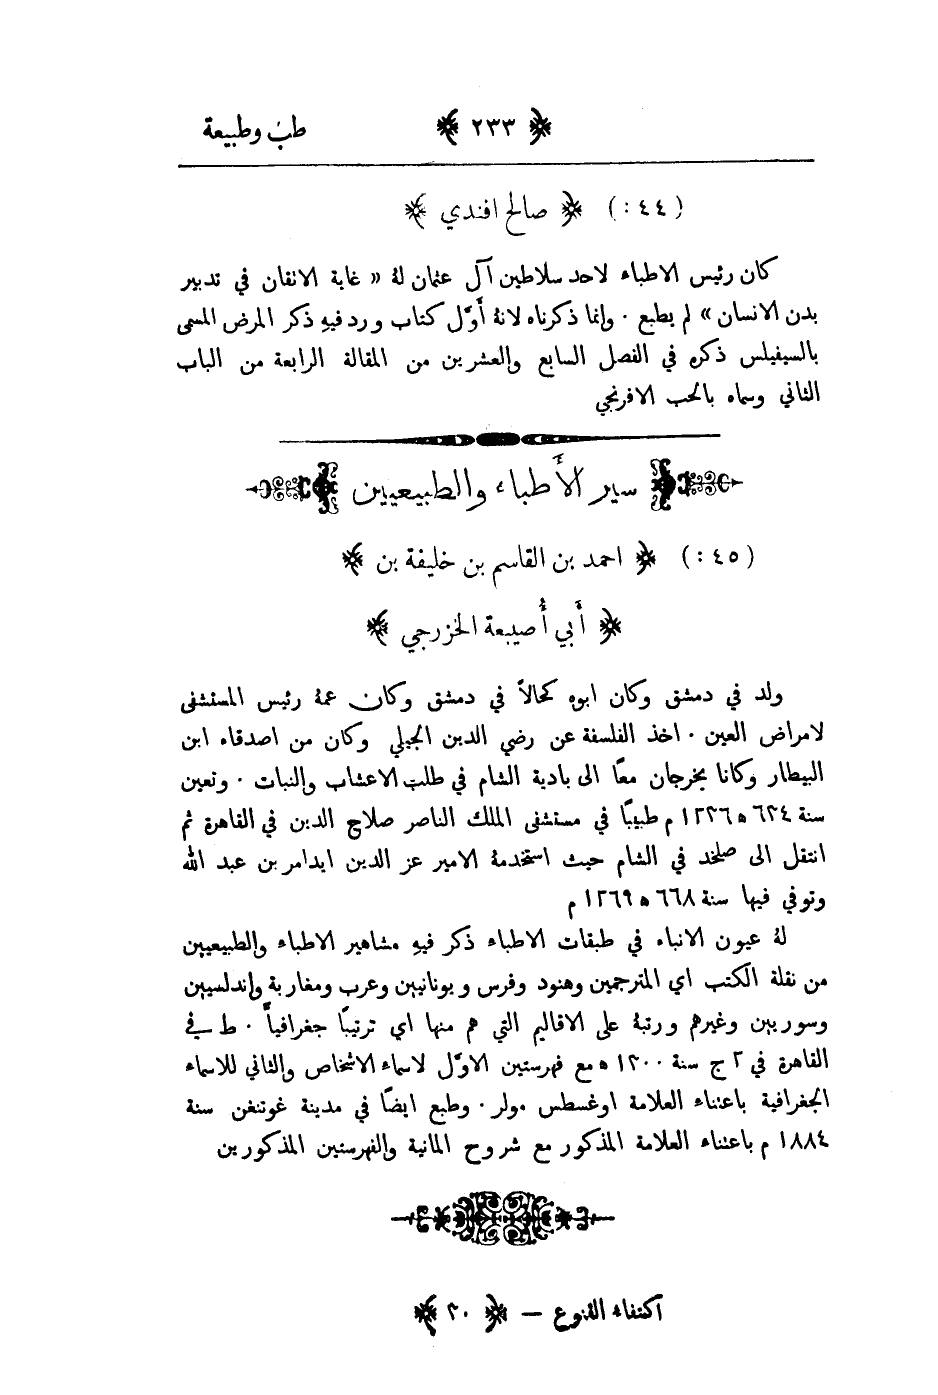 طب وطبيعة ﴿ ٢٣٣ ﴾
(٤٤ :) ﴿ صالح افندي ﴾
كان رئيس الاطباء لاحد سلاطين آل عثمان لهُ « غاية الاتقان في تدبير
بدن الانسان » لم يطبع ٠ وإنما ذكرناه لانهُ أوَّل كتاب ورد فيهِ ذكر المرض المسمى
بالسيفيلس ذكره في الفصل السابع والعشرين من المقالة الرابعة من الباب
الثاني وسماه بالحب الافرنجي
سير الأطباء والطبيعيين
(٤٥ :) ﴿ احمد بن القاسم بن خليفة بن ﴾
﴿ أبي أُصيبعة الخزرجي ﴾
ولد في دمشق وكان ابوه كحالاً في دمشق وكان عمهُ رئيس المستشفى
لامراض العين ٠ اخذ الفلسفة عن رضي الدين الجيلي وكان من اصدقاء ابن
البيطار وكانا يخرجان معًا الى بادية الشام في طلب الاعشاب والنبات ٠ وتعين
سنة ٦٣٤ ه ١٢٣٦ م طبيبًا في مستشفى الملك الناصر صلاح الدين في القاهرة ثم
انتقل الى صلخد في الشام حيث استخدمهُ الامير عز الدين ايدامر بن عبد الله
وتوفي فيها سنة ٦٦٨ ه ١٢٦٩ م
لهُ عيون الانباء في طبقات الاطباء ذكر فيهِ مشاهير الاطباء والطبيعيين
من نقلة الكتب اي المترجمين وهنود وفرس ويونانيين وعرب ومغاربة وإندلسيين
وسوريين وغيرهم ورتبهُ على الاقاليم التي هم منها اي ترتيبًا جغرافياً ٠ ط في
القاهرة في ٢ ج سنة ١٣٠٠ ه مع فهرستين الاوَّل لاسماء الاشخاص والثاني للاسماء
الجغرافية باعتناء العلامة اوغسطس مولر ٠ وطبع ايضًا في مدينة غوتنغن سنة
١٨٨٤ م باعتناء العلامة المذكور مع شروح المانية والفهرستين المذكورين
اكتفاء القنوع — ﴿ ٣٠ ﴾